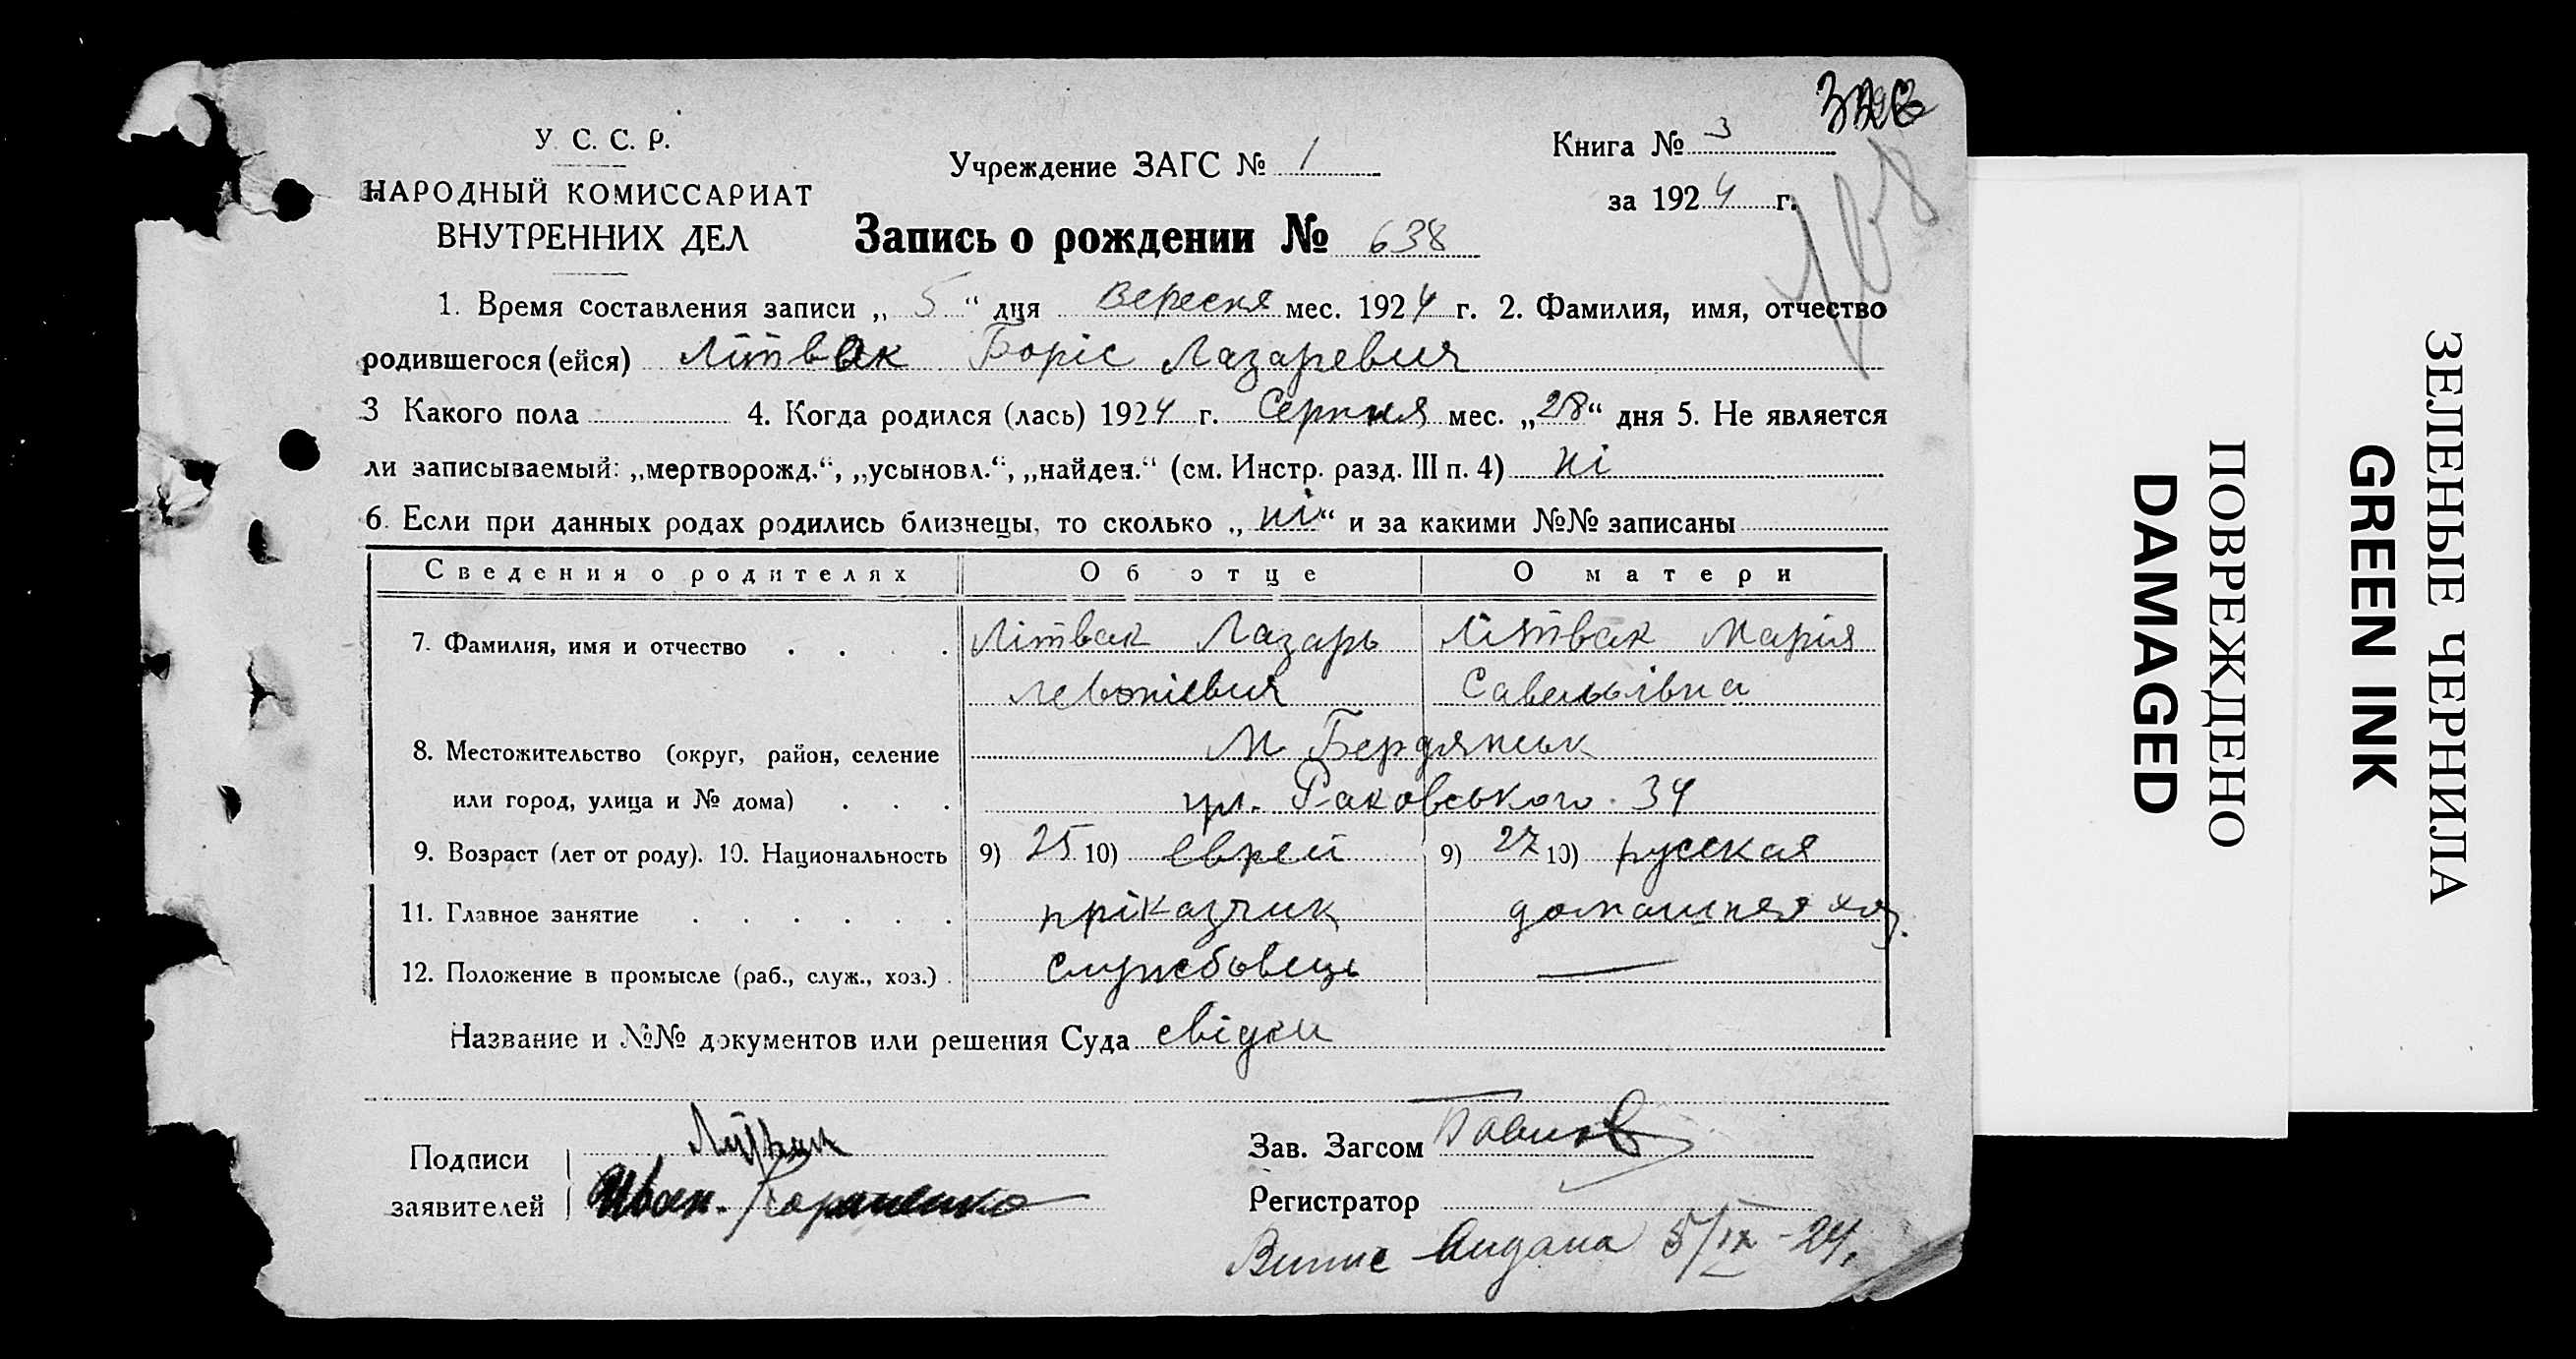 У. С. С. Р.
НАРОДНЫЙ КОМИССАРИАТ
ВНУТРЕННИХ ДЕЛ
Учреждение ЗАГС № 1
Книга № 3
за 1924 г.
Запись о рождении № 638
1. Время составления записи „ 5 “ дня Вересня мес. 1924 г. 2. Фамилия, имя, отчество
родившегося (ейся) Літвак Боріс Лазаревич
3 Какого пола 4. Когда родился (лась) 1924 г. Серпня мес. „28“ дня 5. Не является
ли записываемый: „мертворожд.“, „усыновл.“, „найден.“ (см. Инстр. разд. III п. 4) ні
6. Если при данных родах родились близнецы, то сколько „ ні “ и за какими №№ записаны
Сведения о родителях Об отце О матери
7. Фамилия, имя и отчество . . . . Літвак Лазарь Літвак Марія
Савельівна
8. Местожительство (округ, район, селение М Бердянськ
или город, улица и № дома) . . . ул. Раковського 34
9. Возраст (лет от роду). 10. Национальность 9) 25 10) еврей 9) 27 10) русская
11. Главное занятие . . . . . . пріказчик домашняя хоз.
12. Положение в промысле (раб., служ., хоз.) . службовець —
Название и №№ документов или решения Суда свідки
Подписи
заявителей
Иван
Зав. Загсом
Регистратор
Випис видана 5/IX-24.
ПОВРЕЖДЕНО
DAMAGED
ЗЕЛЕНЫЕ ЧЕРНИЛА
GREEN INK